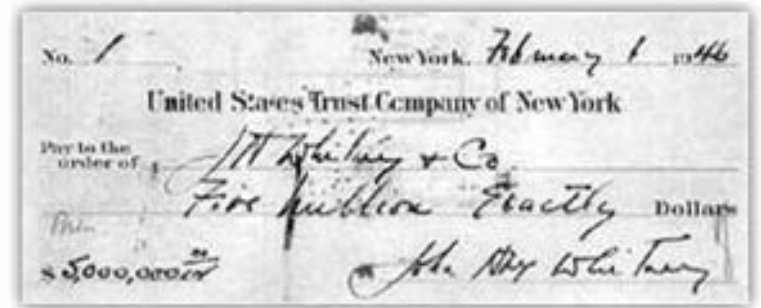 No. 1 New York, February 1 1946
United States Trust Company of New York
Pay to the
order of JH Whitney & Co.
Five million Exactly Dollars
$ 5,000,000 00/xx
John Hay Whitney